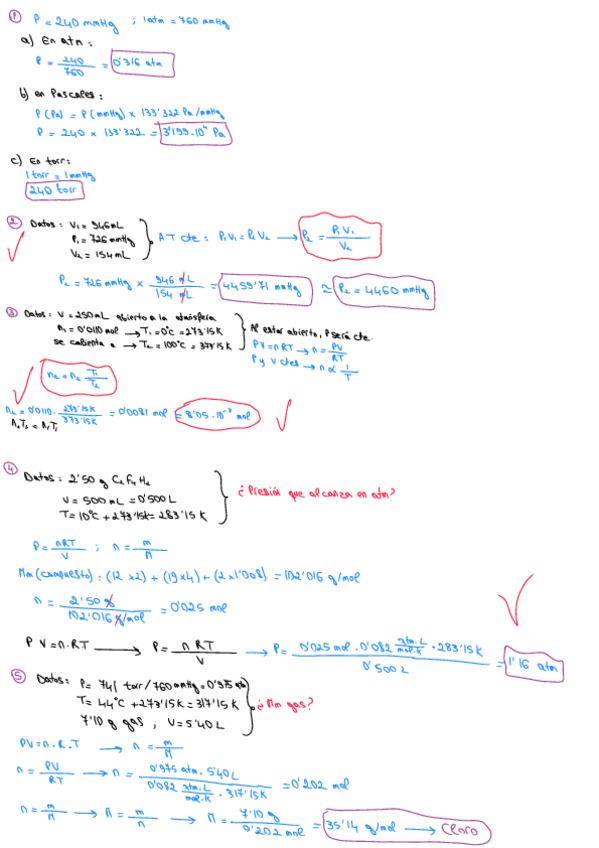 ① P = 240 mmHg ; 1 atm = 760 mmHg
a) En atm :
P = 240/760 = 0'316 atm
b) en Pascales :
P (Pa) = P (mmHg) × 133'322 Pa/mmHg
P = 240 × 133'322 = 3'199·10⁴ Pa
c) En torr:
1 torr = 1 mmHg
240 torr
② Datos: V₁ = 946 mL
P₁ = 726 mmHg
V₂ = 154 mL
A T cte : P₁V₁ = P₂V₂ → P₂ = P₁V₁/V₂
P₂ = 726 mmHg × 946 mL/154 mL = 4459'71 mmHg ≈ P₂ = 4460 mmHg
③ Datos: V = 250 mL abierto a la atmósfera
n₁ = 0'0110 mol → T₁ = 0°C = 273'15 K
se calienta a → T₂ = 100°C = 373'15 K
Al estar abierto, P será cte
PV = nRT → n = PV/RT
P y V ctes → n ∝ 1/T
n₂ = n₁ T₁/T₂
n₂ = 0'0110 · 273'15 K/373'15 K = 0'0081 mol = 8'05·10⁻³ mol
n₂T₂ = n₁T₁
④ Datos: 2'50 g C₂F₄H₂
V = 500 mL = 0'500 L
T = 10°C + 273'15K = 283'15 K
¿Presión que alcanza en atm?
P = nRT/V ; n = m/M
Mm (compuesto) : (12 × 2) + (19 × 4) + (2 × 1'008) = 102'016 g/mol
n = 2'50 g/102'016 g/mol = 0'025 mol
P V = n·RT → P = n RT/V → P = 0'025 mol · 0'082 atm·L/mol·K · 283'15 K/0'500 L = 1'16 atm
⑤ Datos: P = 741 torr/760 mmHg = 0'975 atm
T = 44°C + 273'15 K = 317'15 K
7'10 g gas ; V = 5'40 L
¿Mm gas?
PV = n·R·T → n = m/M
n = PV/RT → n = 0'975 atm · 5'40 L/0'082 atm·L/mol·K · 317'15 K = 0'202 mol
n = m/M → M = m/n → M = 7'10 g/0'202 mol = 35'14 g/mol → Cloro